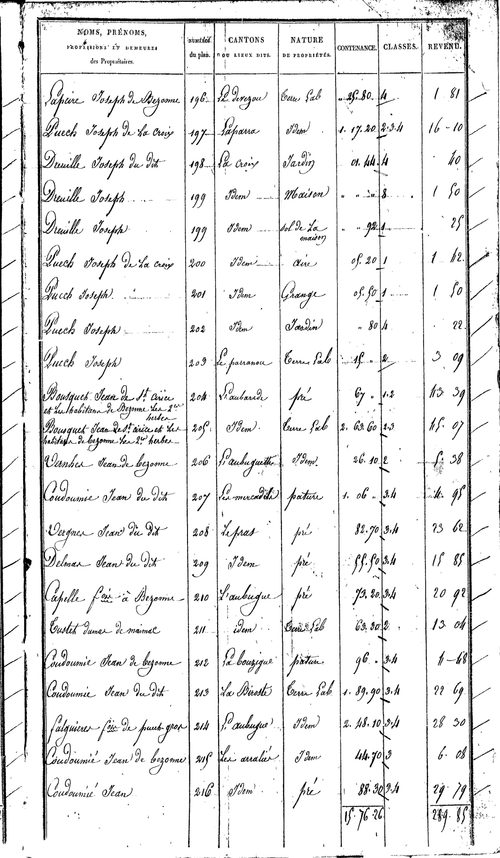 NOMS, PRÉNOMS, PROFESSIONS ET DEMEURES des Propriétaires. NUMÉROS du plan. CANTONS OU LIEUX DITS. NATURE DE PROPRIÉTÉS. CONTENANCE. CLASSES. REVENU.
Lapeire Joseph de Bezonne 196 La devezou Terre Lab " 25. 80. 4 1 81
Puech Joseph de La croix 197 Laparra Idem 1. 17. 20. 2.3.4 16-10
Dreuille Joseph du dit 198 La croix Jardin 01. 44. 4 . 40
Dreuille Joseph 199 Idem Maison " " 8 1 50
Dreuille Joseph 199 Idem sol de La maison " 92. 1 . 25
Puech Joseph de La croix 200 Idem aire 05. 20 1 1 42.
Puech Joseph 201 Idem Grange 05. 50 1 1 50
Puech Joseph 202 Idem Jardin " 80 4 . 22.
Puech Joseph 203 Le parranou Terre Lab 15 " 2 3 09
Bousquet Jean de St. cirice et Les habitans de Bezonne Les 2es herbes 204 L'aubarede pré 67 " 1.2 43 39
Bousquet Jean de St. cirice et Les habitans de bezonne Les 2es herbes 205 Idem Terre Lab 2. 63. 60 2.3 45. 07
Vernhes Jean de bezonne 206 L'aubuguette Idem 26. 10 2 5. 38
Coudoumié Jean du dit 207 Les mercadiés pature 1. 06 " 3.4 4. 95
Vergnes Jean du dit 208 Le pras pré 82. 70 3.4 23 62
Delmas Jean du dit 209 Idem pré 55. 50 3.4 15 85
Capelle fçois à Bezonne 210 L'aubugue pré 73. 20 3.4 20 92
211 idem Terre Lab 63. 30 2 13 04
Coudoumié Jean de bezonne 212 La bouzigue pature 96 " 3.4 4-68
Coudoumié Jean du dit 213 Terre Lab 1. 89. 90 3.4 22 69
falguieres fçois de puech gros 214 L'aubugue Idem 2. 48. 10 3.4 28 30
Coudoumié Jean de bezonne 215 Les arraliés Idem 44. 70 3 6. 08
Coudoumié Jean 216 Idem pré 88. 30 3.4 29-79
15. 76. 26 289. 85